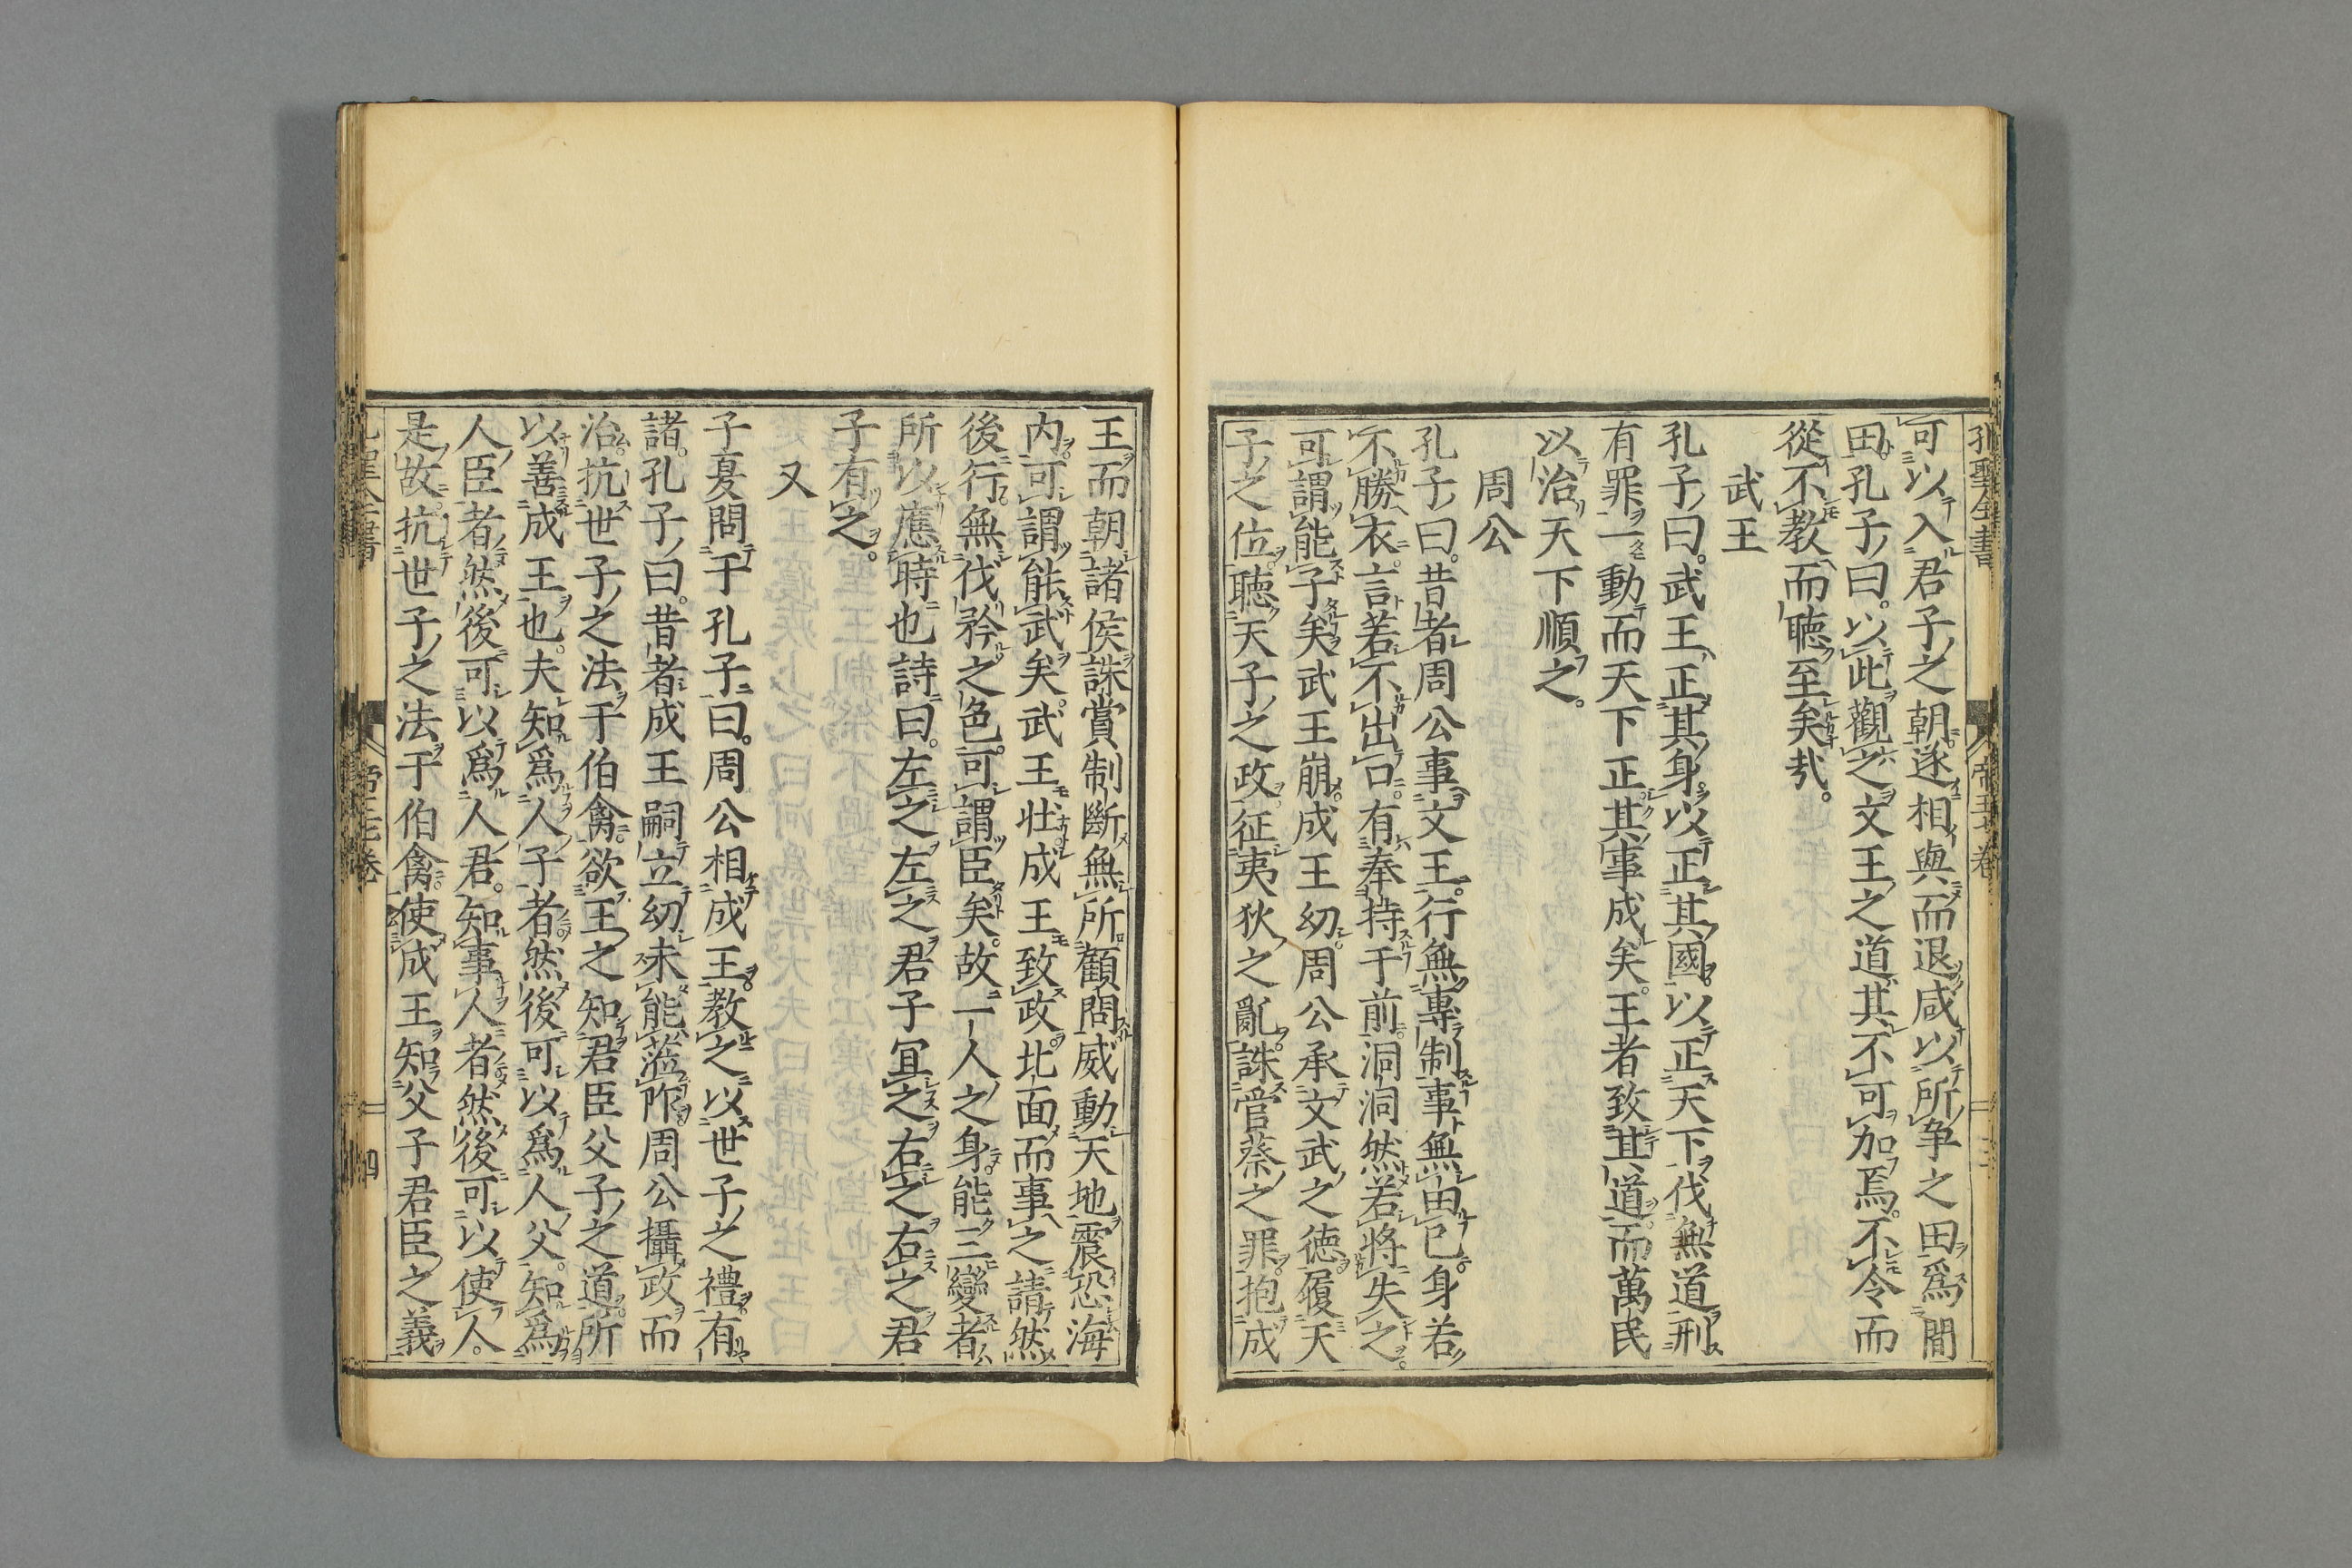 孔聖全書
可以入君子之朝遂相與而退咸以所爭之田爲閒
田孔子曰。以此觀之文王之道其不可加焉。不令而
從不教而聽至矣哉。
武王
孔子曰。武王正其身。以正其國。以正天下伐無道刑
有罪一動而天下正其事成矣。王者致其道而萬民
以治天下順之。
周公
孔子曰。昔者周公事文王。行無專制事無由已。身若
不勝衣言若不出口。有奉持于前洞洞然若將失之。
可謂能子矣武王崩成王幼。周公承文武之德履天
子之位。聽天子之政征夷狄之亂誅管蔡之罪抱成
王而朝諸侯誅賞制斷無所顧問威動天地震恐海
内。可謂能武矣。武王壮。成王致政北面而事之請然
後行無伐矜之色。可謂臣矣。故一人之身。能三變者
所以應時也詩曰。左之左之君子冝之右之右之君
子有之。
又
子夏問于孔子曰。周公相成王。教之以世子之禮。有
諸。孔子曰。昔者成王嗣立幼未能蒞阼周公攝政而
治。抗世子之法于伯禽欲王之知君臣父子之道所
以善成王也。夫知爲人子者然後可以爲人父。知爲
人臣者然後可以爲人君。知事人者然後可以使人。
是故抗世子之法于伯禽使成王知父子君臣之義
四